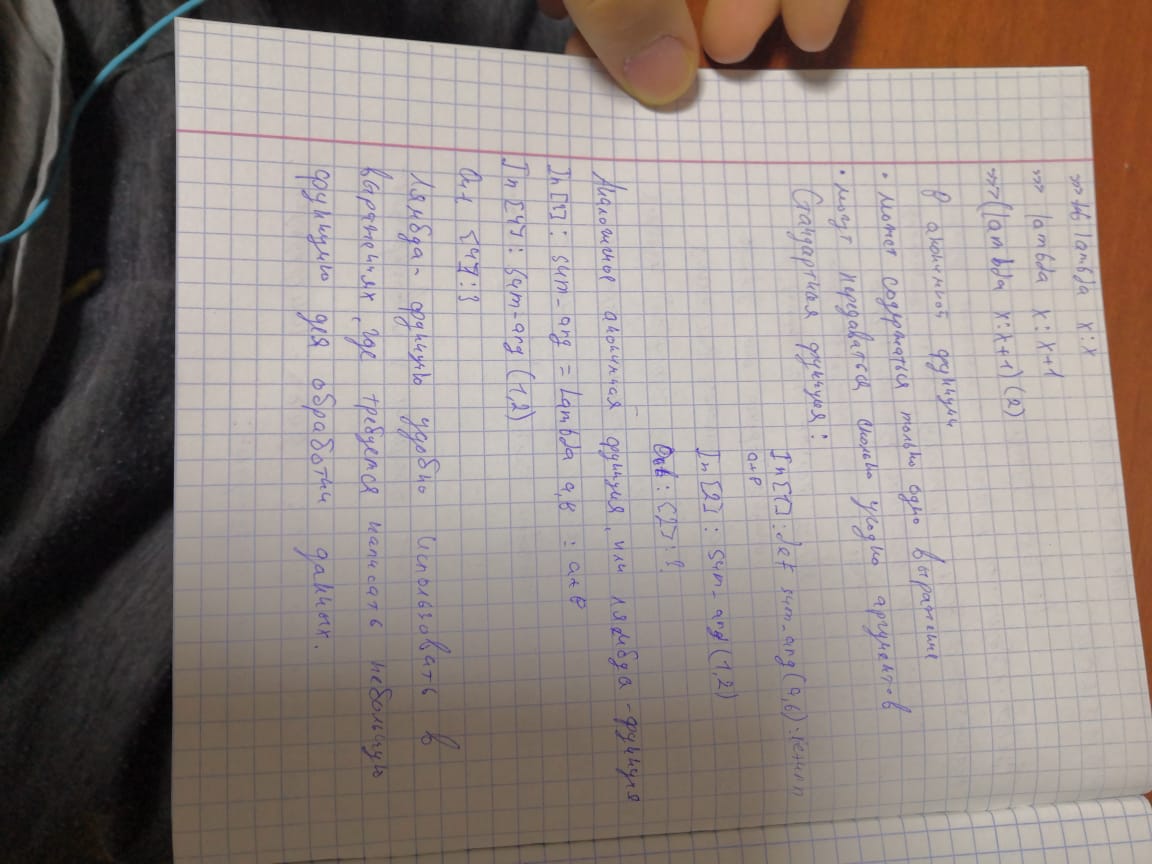 >>> lambda x:x
>>> lambda x:x+1
>>>(lambda x:x+1)(2)
В анонимной функции
• может содержаться только одно выражение
• могут передаваться сколько угодно аргументов
Стандартная функция:
In[1]: def sum_arg(a,b): return
a+b
In[2]: sum_arg(1,2)
Out: [2]: 3
Аналогичное анонимная функция, или лямбда-функция
In[3]: sum_arg = Lambda a,b : a+b
In[4]: sum_arg (1,2)
Out [4]: 3
Лямбда-функцию удобно использовать в
выражениях, где требуется написать небольшую
функцию для обработки данных.